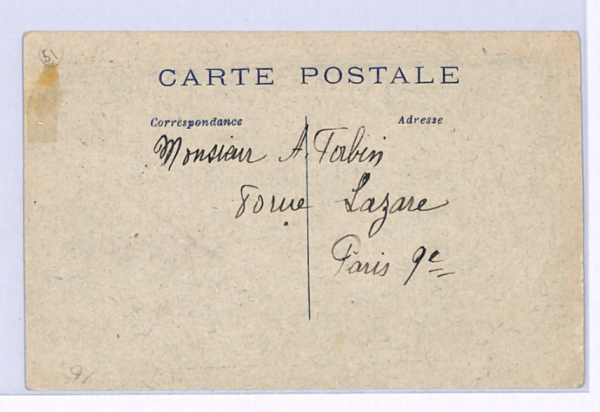 51
CARTE POSTALE
Correspondance Adresse
Monsieur A. Forbin
rue Lazare
Paris 9e